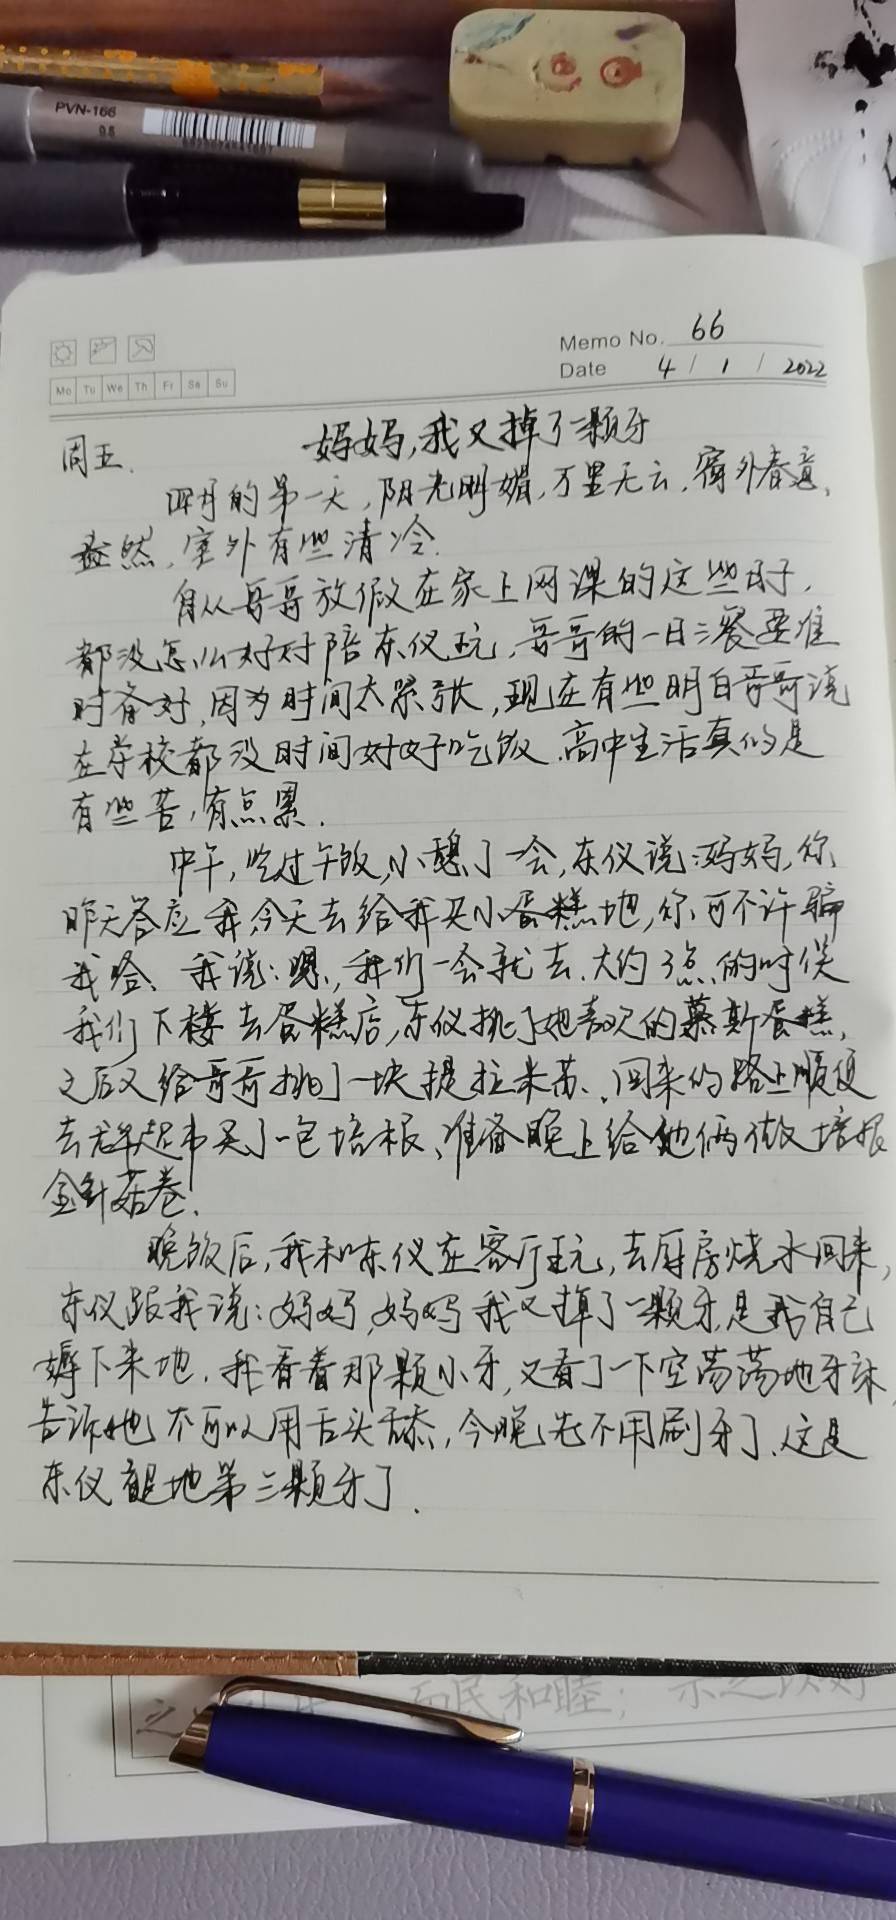 PVN-166
Memo No. 66
Date 4 / 1 / 2022
Mo Tu We Th Fr Sa Su
妈妈,我又掉了一颗牙
周五.
四月的第一天,阳光明媚,万里无云,窗外春意
盎然,室外有些清冷.
自从哥哥放假在家上网课的这些日子,
都没怎么好好陪东仪玩,哥哥的一日三餐要准
时备好,因为时间太紧张,现在有些明白哥哥说
在学校都没时间好好吃饭.高中生活真的是
有些苦,有点累.
中午,吃过午饭,小憩了一会,东仪说:妈妈,你
昨天答应我,今天去给我买小蛋糕地,你可不许骗
我哈、我说:嗯,我们一会就去.大约3点的时侯
我们下楼去蛋糕店,东仪挑了她喜欢的慕斯蛋糕,
之后又给哥哥挑了一块提拉米苏、回来的路上顺便
去超市买了一包培根、准备晚上给他俩做培根
金针菇卷.
晚饭后,我和东仪在客厅玩,去厨房烧水回来,
东仪跟我说:妈妈,妈妈我又掉了一颗牙,是我自己
薅下来地.我看着那颗小牙,又看了一下空荡荡地牙床,
告诉她不可以用舌头舔,今晚先不用刷牙了.这是
东仪地第三颗牙了.
而民和睦;示之以好